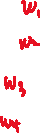 W1
W2
W3
W4